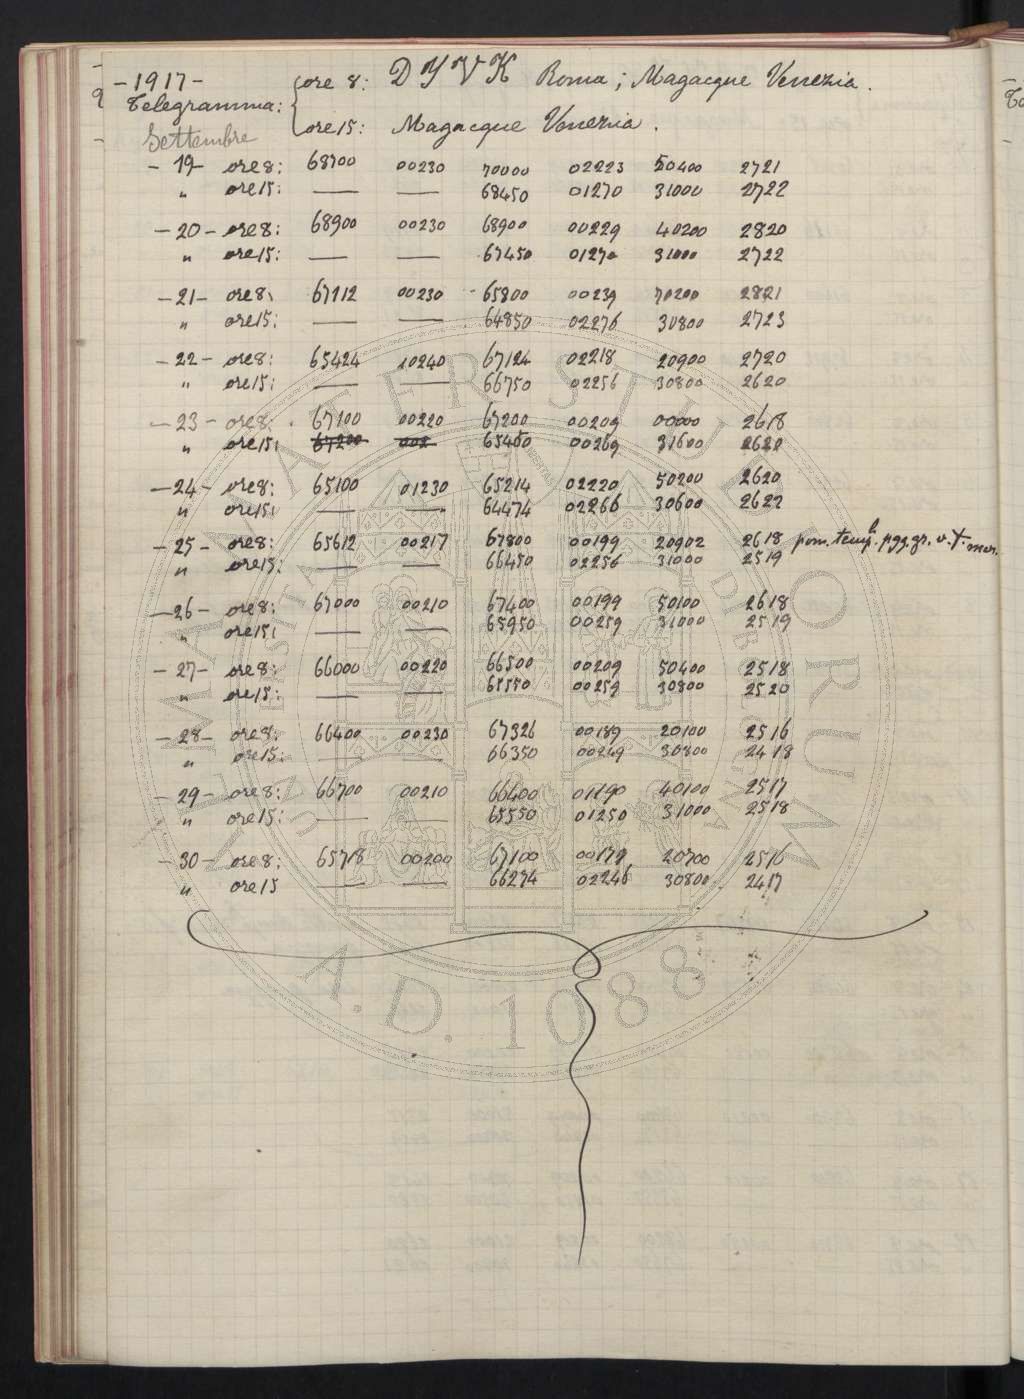 -1917- ore 8: DYVK Roma; Magacque Venezia.
Telegramma:
ore 15: Magacque Venezia.
Settembre
-19- ore 8: 68700 00230 70000 02223 50400 2721
" ore 15: — — 68450 01270 31000 2722
-20- ore 8: 68900 00230 68900 00229 40200 2820
" ore 15: — — 67450 01270 31000 2722
-21- ore 8: 67112 00230 65800 00239 70200 2821
" ore 15: — — 64850 02276 30800 2723
-22- ore 8: 65424 10240 67124 02218 20900 2720
" ore 15: — — 66750 02256 30800 2620
-23- ore 8: 67100 00220 67200 00209 00000 2618
" ore 15: 67200 002 65450 00269 31600 2620
-24- ore 8: 65100 01230 65214 02220 50200 2620
" ore 15: — — 64474 02266 30600 2622
-25- ore 8: 65612 00217 67800 00199 20902 2618 pom. temp. pgg. gr. v.
" ore 15: — — 66450 02256 31000 2519
-26- ore 8: 67000 00210 67400 00199 50100 2618
" ore 15: — — 65950 00259 31000 2519
-27- ore 8: 66000 00220 66500 00209 50400 2518
" ore 15: — — 65550 00259 30800 2520
-28- ore 8: 66400 00230 67326 00189 20100 2516
" ore 15: — — 66350 00249 30800 2418
-29- ore 8: 66700 00210 66400 01190 40100 2517
" ore 15: — — 65550 01250 31000 2518
-30- ore 8: 65718 00200 67100 00179 20700 2516
" ore 15 — — 66274 02246 30800 2417
ALMA MATER STUDIORUM
A.D. 1088